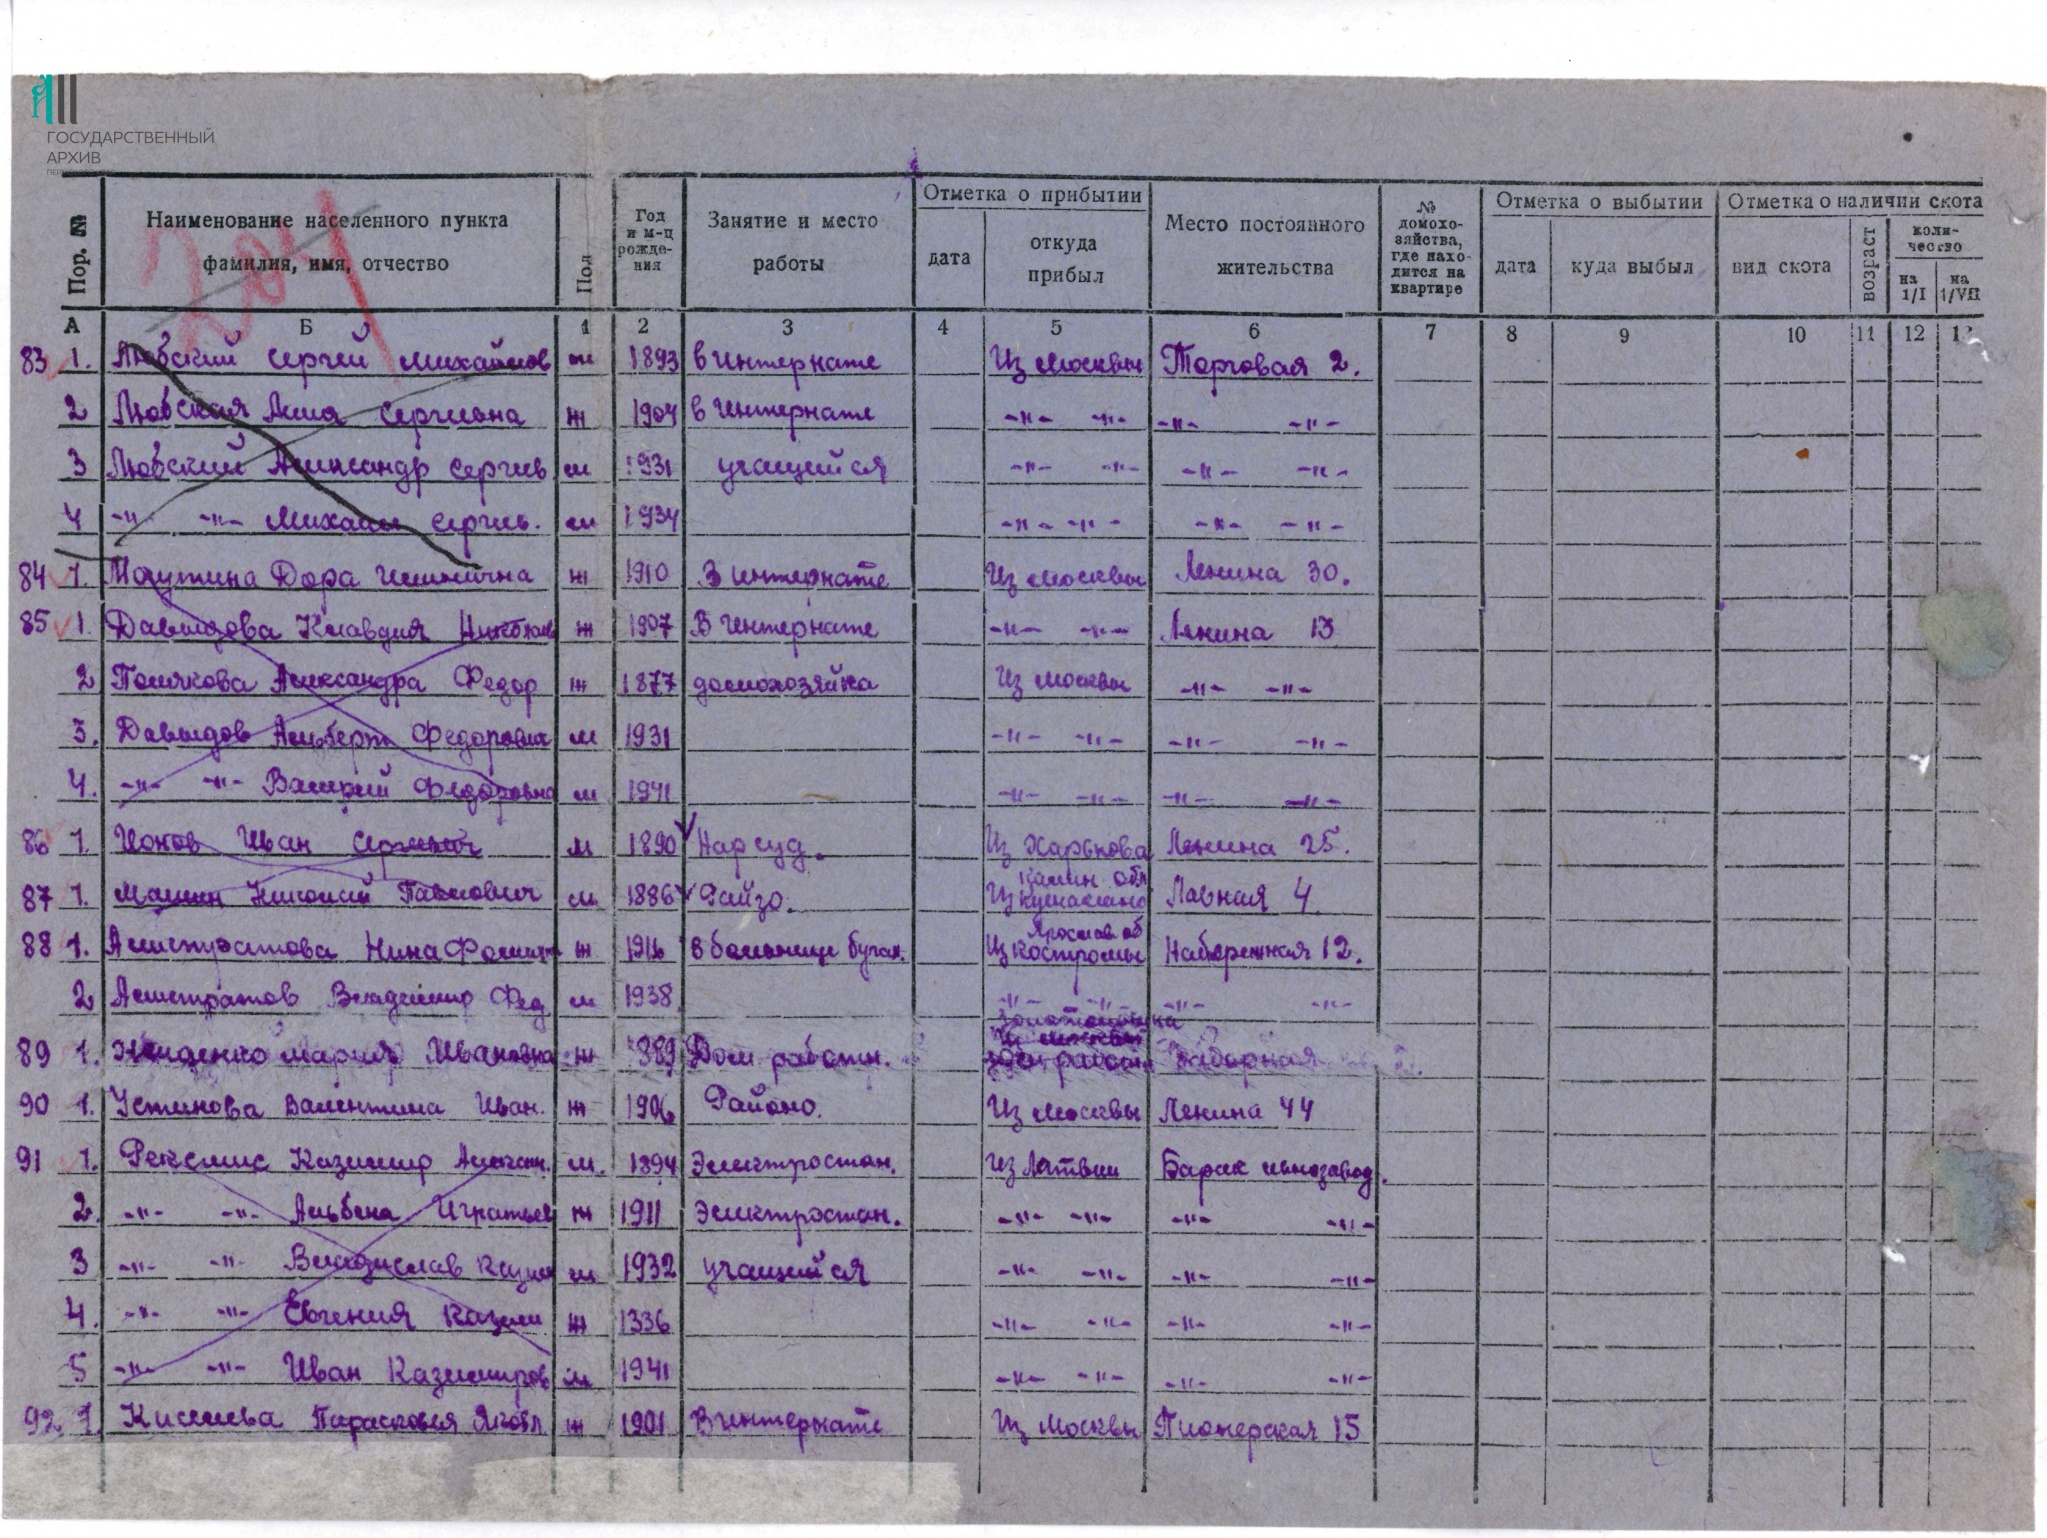 ГОСУДАРСТВЕННЫЙ
АРХИВ
Пор. № Наименование населенного пункта фамилия, имя, отчество Пол Год и м-ц рожде- ния Занятие и место работы Отметка о прибытии дата откуда прибыл Место постоянного жительства № домохо- зяйства, где нахо- дится на квартире Отметка о выбытии дата куда выбыл Отметка о наличии скота вид скота возраст коли- чество на 1/I на 1/VII
204
А Б 1 2 3 4 5 6 7 8 9 10 11 12
83 1. Любский Сергей Михайлов м 1893 в интернате Из Москвы Торговая 2.
2 Любская Лия Сергеевна ж 1904 в интернате -"- -"- -"- -"-
3 Любский Александр Сергеев м 1931 учащийся -"- -"- -"- -"-
4 -"- -"- Михаил Сергеев. м 1934 -"- -"- -"- -"-
84 1. Дора ж 1910 В интернате Из Москвы Ленина 30.
85 1. Давыдова Клавдия Николаев ж 1907 В интернате -"- -"- Ленина 13
2 Полякова Александра Федор ж 1877 домохозяйка Из Москвы -"- -"-
3. Давыдов Альберт м 1931 -"- -"- -"- -"-
4. -"- -"- Валерий м 1941 -"- -"- -"- -"-
86 1. Ионов Иван Сергеевич м 1890 Нарсуд. Из Харькова Ленина 25.
87 1. Николай Павлович м 1886 Райзо. Калин обл. Из Главная 4
88 1. Алистратова Нина ж 1916 В больнице Ярослав об Из Костромы Набережная 12.
2 Алистратов Владимир Фед м 1938 -"- -"- -"- -"-
89 1. Мария Ивановна ж 1889 Дом работн.
90 1. Устинова Валентина Иван. ж 1906 Районо. Из Москвы Ленина 44
91 1. Казимир Алексан. м. 1894 Электростан. Из Латвии Барак льнозавод.
2. -"- -"- Альбина Игнатьев ж 1911 Электростан. -"- -"- -"- -"-
3 -"- -"- Владислав Казим м 1932 учащийся -"- -"- -"- -"-
4. -"- -"- Евгения Казим ж 1336 -"- -"- -"- -"-
5 -"- -"- Иван Казимиров м 1941 -"- -"- -"- -"-
92 1. Киселева Парасковея Яковл ж 1901 В интернате Из Москвы Пионерская 15